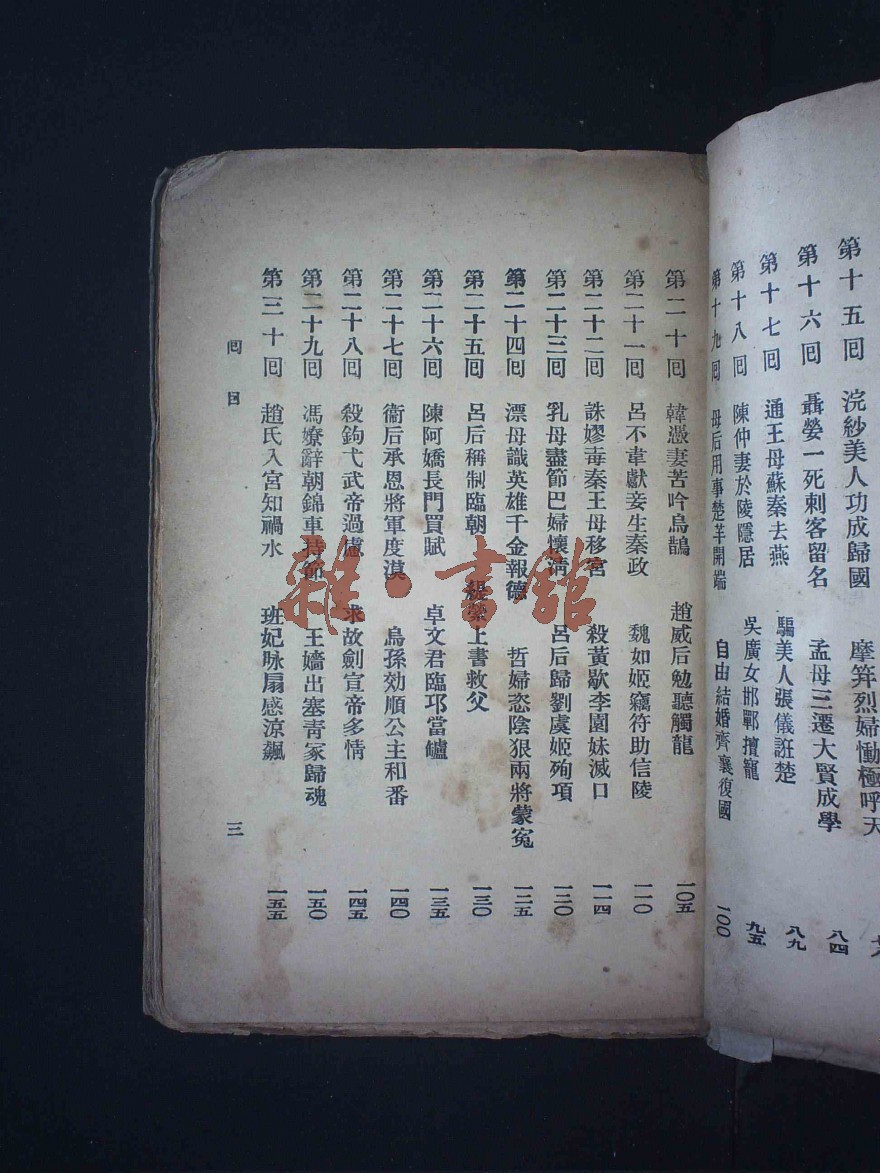 第十五回　浣紗美人功成歸國　摩笄烈婦慟極呼天
第十六回　聶嫈一死刺客留名　孟母三遷大賢成學　八四
第十七回　通王母蘇秦去燕　騙美人張儀誑楚　八九
第十八回　陳仲妻於陵隱居　吳廣女邯鄲擅寵　九五
第十九回　母后用事楚芈開端　自由結婚齊襄復國　一〇〇
第二十回　韓憑妻苦吟烏鵲　趙威后勉聽觸龍　一〇五
第二十一回　呂不韋獻妾生秦政　魏如姬竊符助信陵　一一〇
第二十二回　誅嫪毐秦王母移宮　殺黃歇李園妹滅口　一一四
第二十三回　乳母盡節巴婦懷清　呂后歸劉虞姬殉項　一二〇
第二十四回　漂母識英雄千金報德　哲婦恣陰狠兩將蒙冤　一二五
第二十五回　呂后稱制臨朝　緹縈上書救父　一三〇
第二十六回　陳阿嬌長門買賦　卓文君臨邛當鑪　一三五
第二十七回　衞后承恩將軍度漠　烏孫効順公主和番　一四〇
第二十八回　殺鉤弋武帝過慮　求故劍宣帝多情　一四五
第二十九回　馮嫽辭朝錦車持節　王嬙出塞青冢歸魂　一五〇
第三十回　趙氏入宮知禍水　班妃咏扇感涼飆　一五五
回目　三
雜·書館